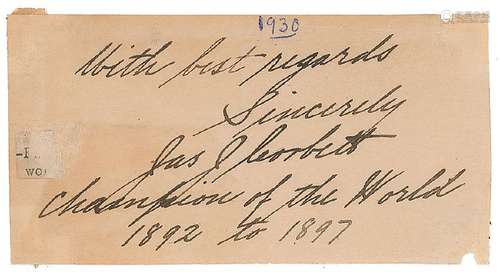 1930
With best regards
Sincerely
Jas J Corbett
Champion of the World
1892 to 1897